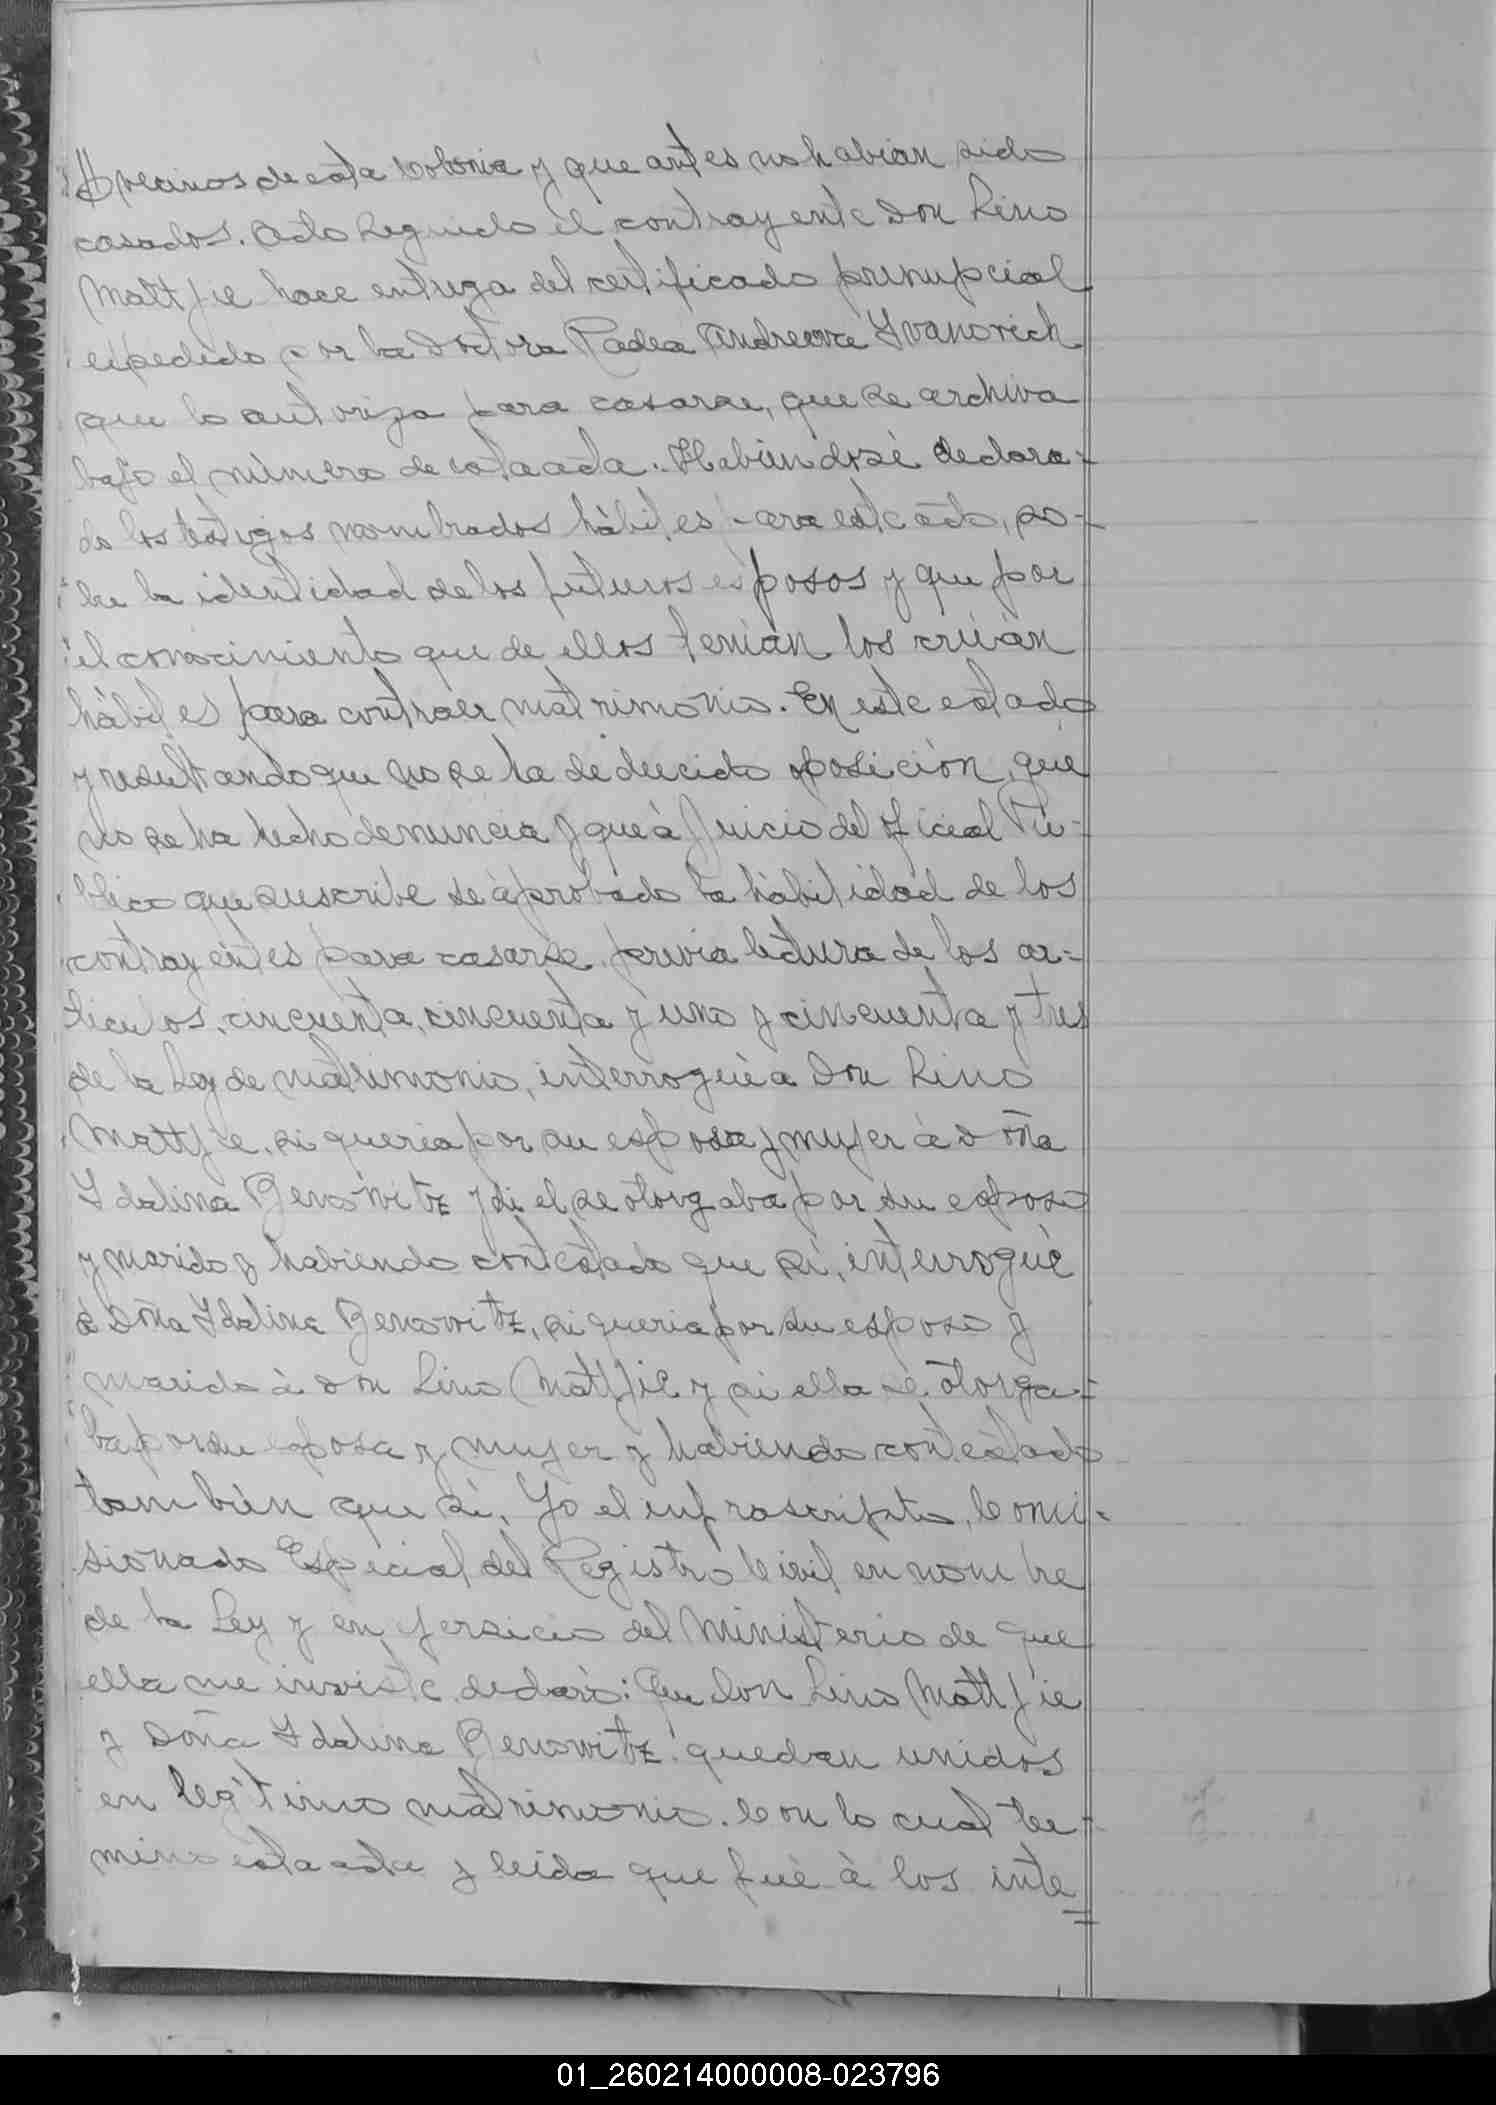 vecinos de esta Colonia y que antes no habian sido
casados. Acto seguido el contrayente Don Lino
Mattjie hace entrega del certificado prenupcial
expedido por la Doctora Radea Andreova Yvanovich
que lo autoriza para casarse, que se archiva
bajo el número de esta acta. Habiéndosé declara=
do los testigos nombrados hábiles para este acto, so-
bre la identidad de los futuros esposos y que por
el conocimiento que de ellos tenían los crúían
hábiles para contraer matrimonio. En este estado
y resultando que no se ha deducido oposición, que
no se ha hecho denuncia y que à juicio del oficial Pú-
blico que suscribe se à probado la habilidad de los
contrayentes para casarse, previa lectura de los ar=
ticulos, cincuenta, cincuenta y uno y cincuenta y tres
de la Ley de matrimonio, interrogué a Don Lino
Mattjie, si queria por su esposa y mujer à Doña
Ydalina Benowitz y si el se otorgaba por su esposo
y marido y habiendo contestado que si, interrogué
à Doña Ydalina Benowitz, si queria por su esposo y
marido à Don Lino Mattjie y si ella se otorga=
ba por su esposa y mujer y habiendo contestado
también que si, Yo el infrascripto, Comi-
sionado Especial del Registro Civil en nombre
de la Ley y en jersicio del Ministerio de que
ella me inviste, declaro: Que Don Lino Mattjie
y Doña Ydalina Benowitz quedan unidos
en legítimo matrimonio. Con lo cual ter-
mino esta acta y leida que fué à los inte
=
01_260214000008-023796